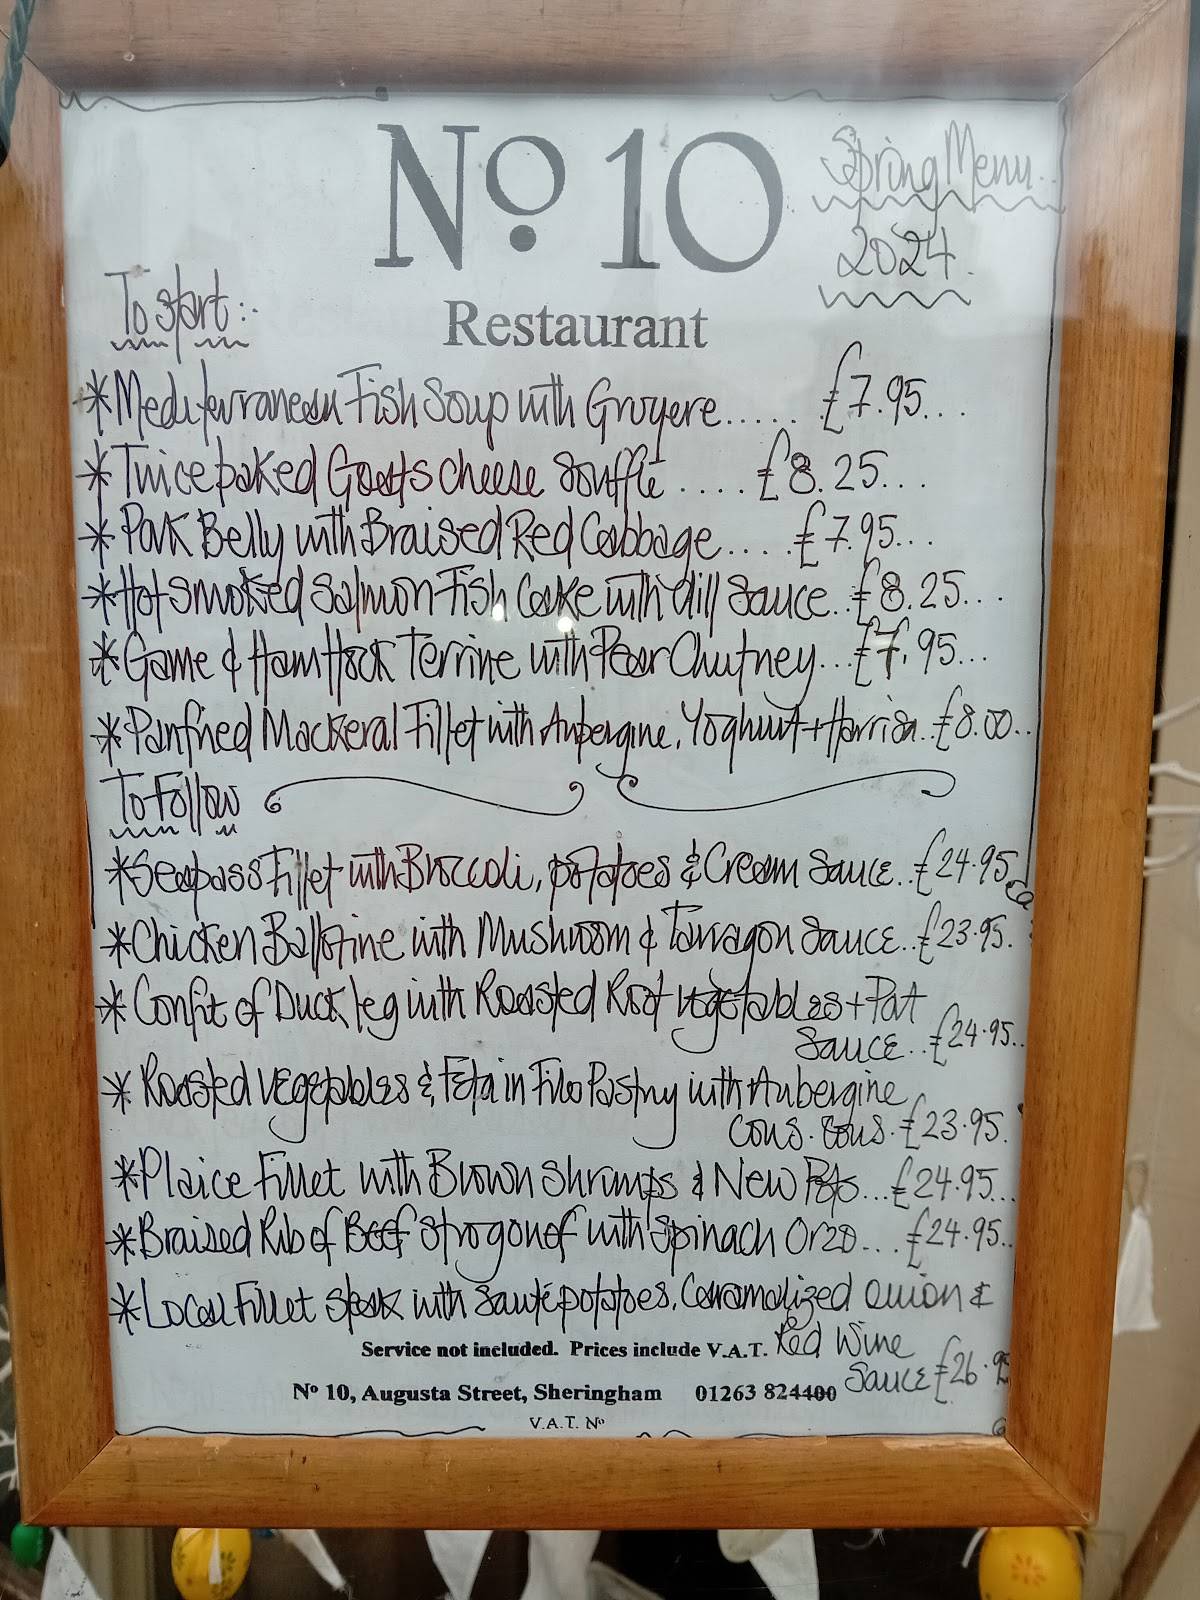 Nº 10
Spring Menu..
2024.
Restaurant
To start:-
*Mediterranean Fish Soup with Gruyere..... £7.95...
*Twice baked Goats cheese Soufflé .... £8.25...
*Pork Belly with Braised Red Cabbage.... £7.95...
*Hot smoked Salmon Fish Cake with dill Sauce..£8.25...
*Game & Ham Hock Terrine with Pear Chutney...£7.95...
*Panfried Mackeral Fillet with Aubergine, Yoghurt + Harrisa..£8.00..
To Follow
*Seabass Fillet with Broccoli, potatoes & Cream Sauce..£24.95
*Chicken Ballotine with Mushroom & Tarragon Sauce..£23.95.
*Confit of Duck leg with Roasted Root vegetables + Port
Sauce..£24.95..
*Roasted vegetables & Feta in Filo Pastry with Aubergine
Cous.Cous.£23.95.
*Plaice Fillet with Brown Shrimps & New Pots...£24.95...
*Braised Rib of Beef Strogonof with Spinach Orzo...£24.95..
*Local Fillet Steak with Sauté potatoes, Caramalized onion &
Red Wine
Sauce £26.95
Service not included. Prices include V.A.T.
Nº 10, Augusta Street, Sheringham 01263 824400
V.A.T. Nº